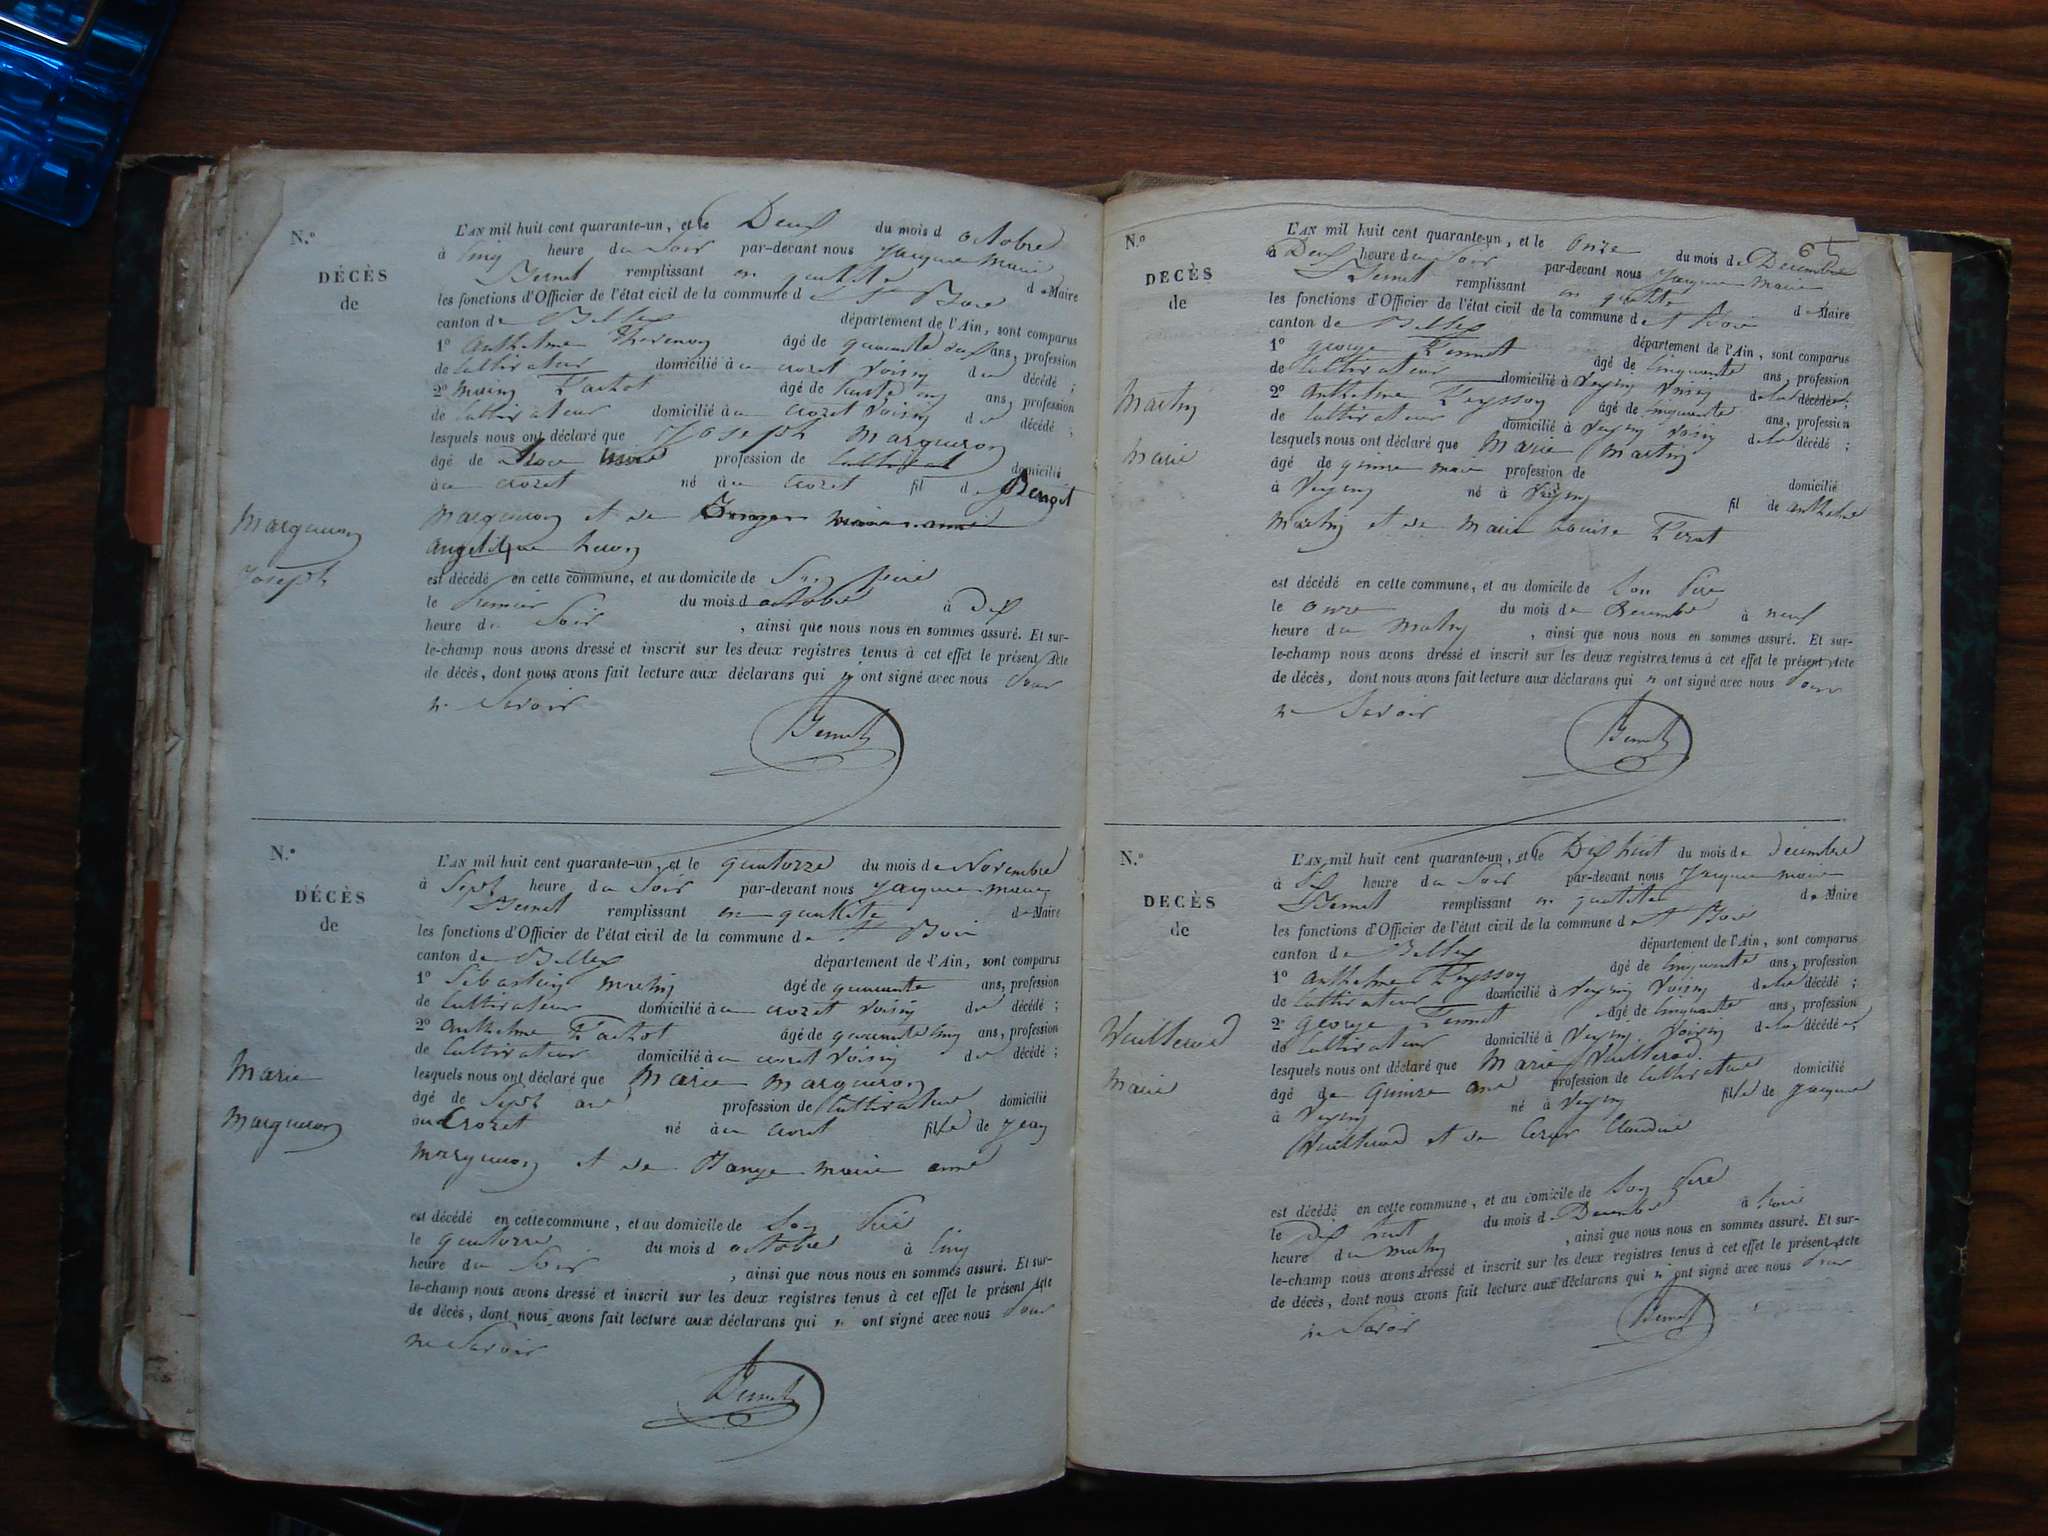 N.o
DÉCÈS
de
Margueron
Joseph
L'AN mil huit cent quarante-un, et le Deux du mois d octobre
à Cinq heure du Soir par-devant nous jacque Marie
Bernet remplissant en qualité d e Maire
les fonctions d'Officier de l'état civil de la commune d e St Bois
canton de Belley département de l'Ain, sont comparus
1o anthelme Thevenon âgé de quarante ans, profession
de Cultivateur domicilié à au crozet voisin du décédé ;
2o âgé de trente ans, profession
de Cultivateur domicilié à au Crozet Voisin du décédé ;
lesquels nous ont déclaré que Joseph Margueron
âgé de profession de domicilié
à au crozet né à au crozet fil de Benoit
Margueron et de
angelique
est décédé en cette commune, et au domicile de Son père
le Premier du mois d octobre à dix
heure du Soir , ainsi que nous nous en sommes assuré. Et sur-
le-champ nous avons dressé et inscrit sur les deux registres tenus à cet effet le présent Acte
de décès, dont nous avons fait lecture aux déclarans qui n ont signé avec nous Pour
ne Savoir
Bernet
N.o
DÉCÈS
de
Marie
Margueron
L'AN mil huit cent quarante-un, et le quatorze du mois de Novembre
à Sept heure du Soir par-devant nous jacque marie
Bernet remplissant en qualité de Maire
les fonctions d'Officier de l'état civil de la commune de St Bois
canton de Belley département de l'Ain, sont comparus
1o Sébastien martin âgé de quarante ans, profession
de Cultivateur domicilié à au crozet voisin du décédé ;
2o anthelme Tachot âgé de quarante cinq ans, profession
de Cultivateur domicilié à au crozet Voisin du décédé ;
lesquels nous ont déclaré que Marie Margueron
âgé de Sept ans profession de Cultivateur domicilié
au Crozet né à au crozet fille de jean
Margueron et de Bange marie anne
est décédé en cette commune, et au domicile de Son Père
le quatorze du mois d octobre à Cinq
heure du Soir , ainsi que nous nous en sommes assuré. Et sur-
le-champ nous avons dressé et inscrit sur les deux registres tenus à cet effet le présent Acte
de décès, dont nous avons fait lecture aux déclarans qui n ont signé avec nous Pour
ne Savoir
Bernet
65
N.o
DÉCÈS
de
Martin
Marie
L'AN mil huit cent quarante-un, et le onze du mois de Décembre
à Deux heure du Soir par-devant nous jacque marie
Bernet remplissant en qualité de Maire
les fonctions d'Officier de l'état civil de la commune de St Bois
canton de Belley département de l'Ain, sont comparus
1o george Pernet âgé de cinquante ans, profession
de Cultivateur domicilié à Veyrin Voisin de la décédé ;
2o Anthelme Peysson âgé de cinquante ans, profession
de Cultivateur domicilié à Veyrin Voisin de la décédé ;
lesquels nous ont déclaré que Marie Martin
âgé de quinze mois profession de domicilié
à Veyrin né à Veyrin fil de anthelme
Martin et de Marie Louise
est décédé en cette commune, et au domicile de Son Père
le onze du mois de Décembre à neuf
heure du Matin , ainsi que nous nous en sommes assuré. Et sur-
le-champ nous avons dressé et inscrit sur les deux registres tenus à cet effet le présent Acte
de décès, dont nous avons fait lecture aux déclarans qui n ont signé avec nous Pour
ne Savoir
Bernet
N.o
DECÈS
de
Vuillerod
Marie
L'AN mil huit cent quarante-un, et le Dix huit du mois de Décembre
à Six heure du Soir par-devant nous jacque marie
Bernet remplissant en qualité de Maire
les fonctions d'Officier de l'état civil de la commune de St Bois
canton de Belley département de l'Ain, sont comparus
1o anthelme Peysson âgé de cinquante ans, profession
de Cultivateur domicilié à Veyrin Voisin de la décédé ;
2o george Pernet âgé de cinquante ans, profession
de Cultivateur domicilié à Veyrin Voisin de la décédé ;
lesquels nous ont déclaré que Marie Vuillerod
âgé de quinze ans profession de Cultivateur domicilié
à Veyrin né à Veyrin fille de jacque
Vuillerod et de Claudine
est décédé en cette commune, et au domicile de Son père
le dix huit du mois de Décembre à trois
heure du matin , ainsi que nous nous en sommes assuré. Et sur-
le-champ nous avons dressé et inscrit sur les deux registres tenus à cet effet le présent Acte
de décès, dont nous avons fait lecture aux déclarans qui n ont signé avec nous Pour
ne Savoir
Bernet